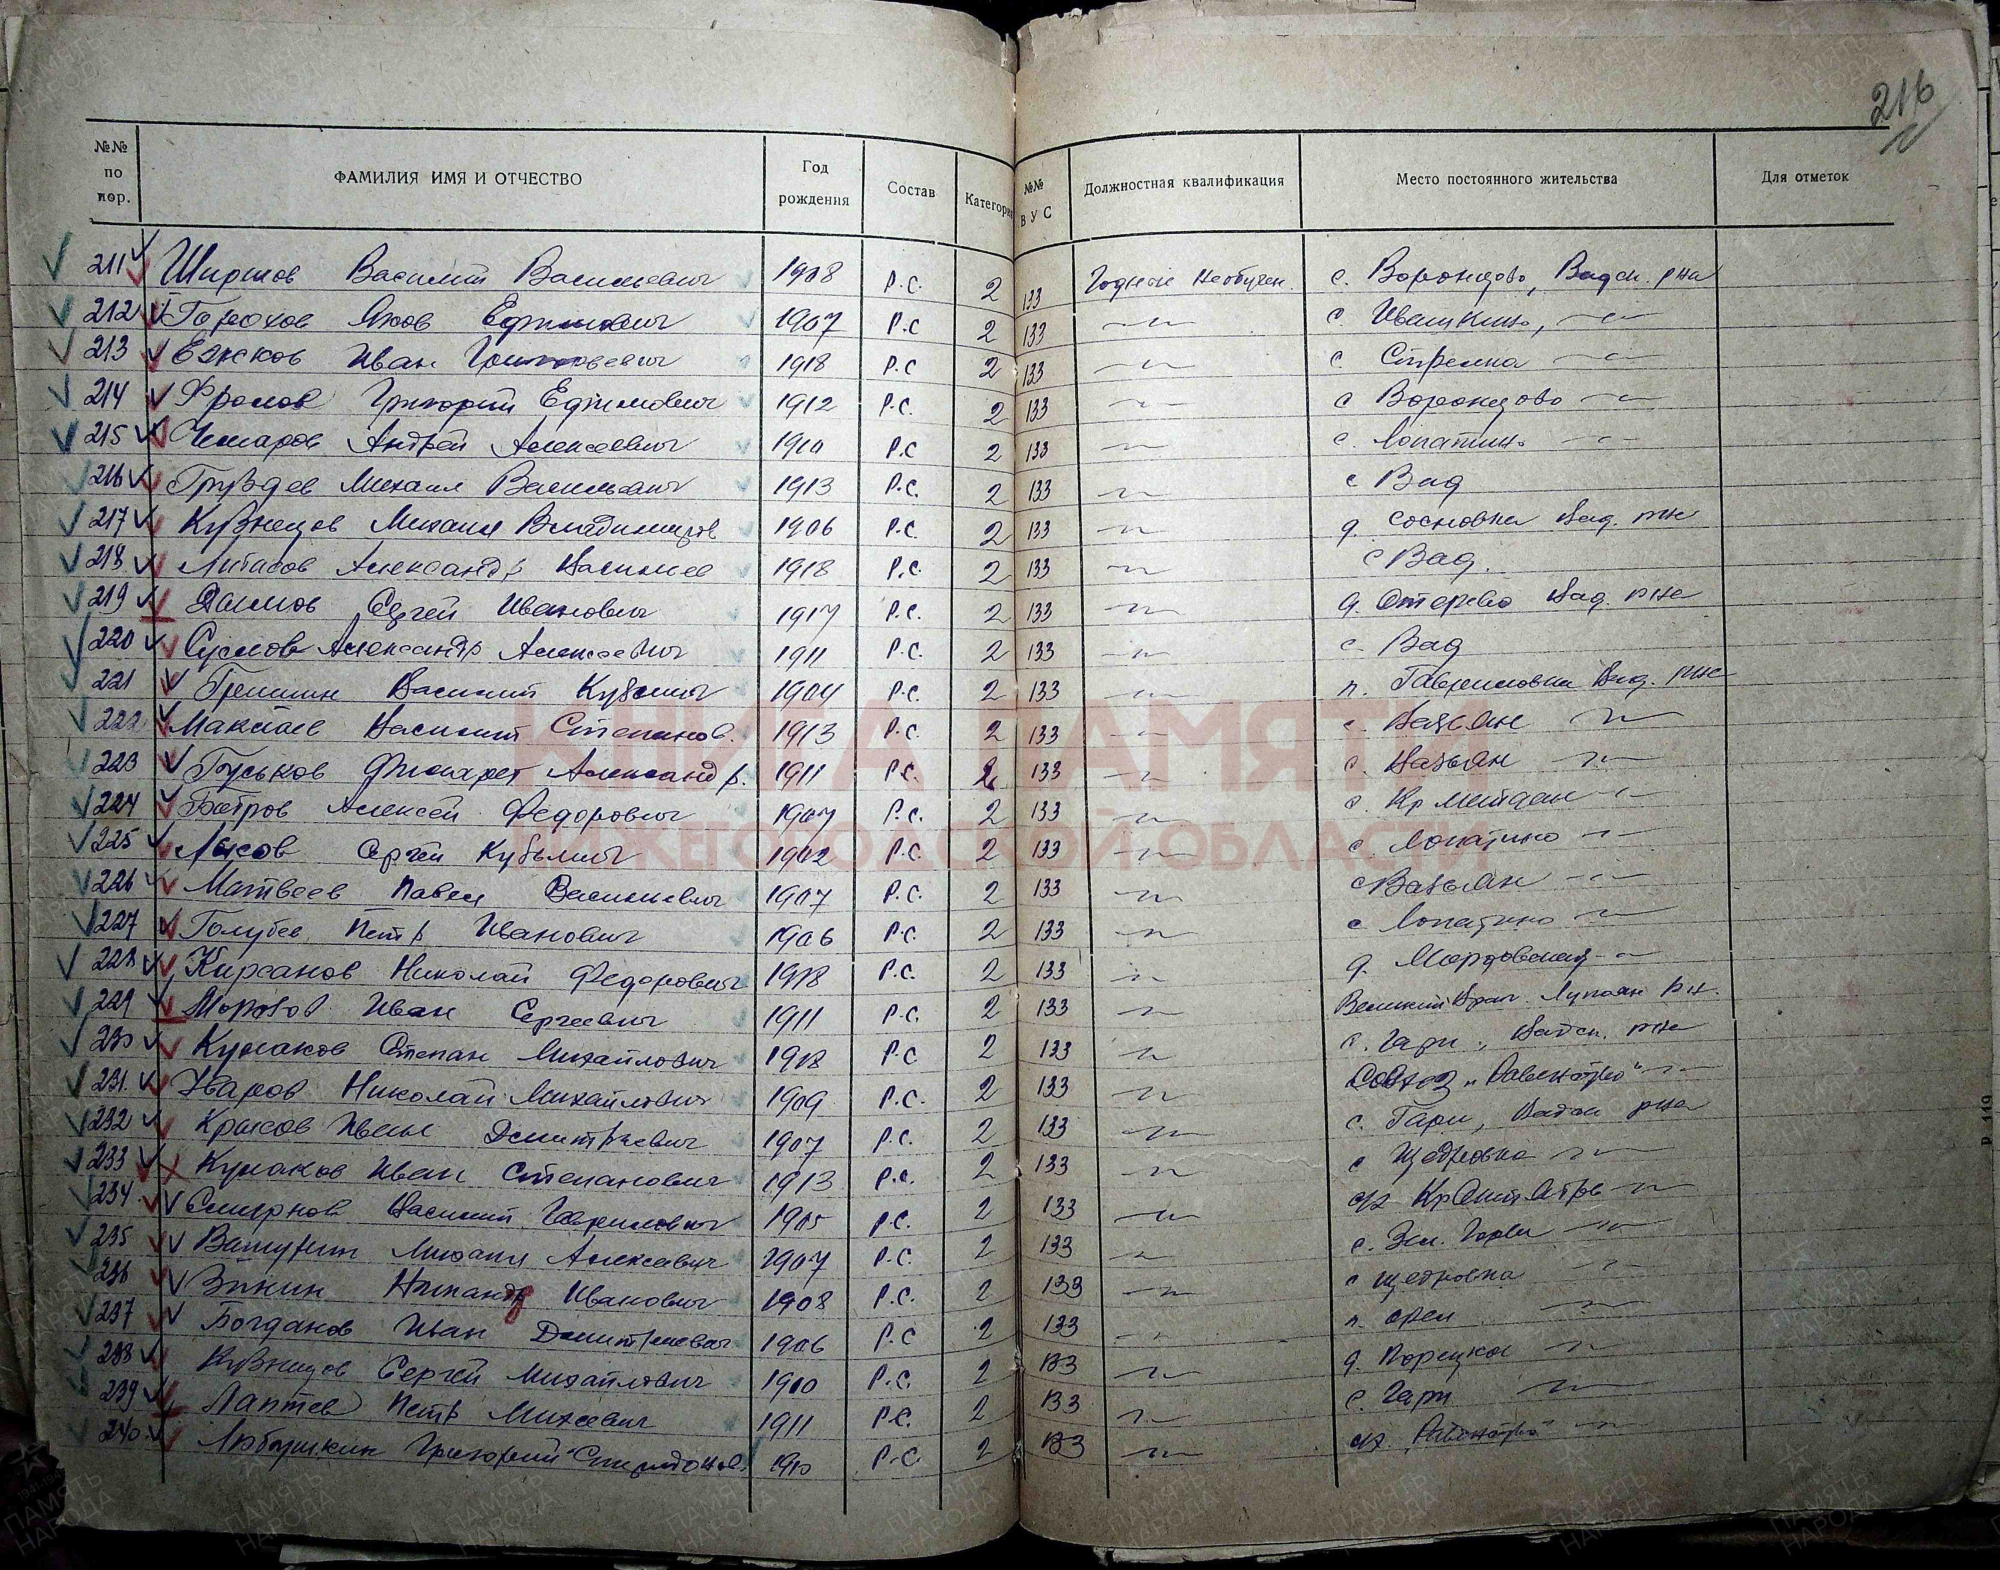 216
№№ по пор. ФАМИЛИЯ ИМЯ И ОТЧЕСТВО Год рождения Состав Категория №№ ВУС Должностная квалификация Место постоянного жительства Для отметок
211 Ширшов Василий Васильевич 1908 Р.С. 2 133 Годный необучен. с. Воронцово, Вадск. р-на
212 Горохов Яков Ефимович 1907 Р.С 2 133 —"— с. Ивашкино, —"—
213 Ежков Иван 1918 Р.С 2 133 —"— с. Стрелка —"—
214 Фролов Григорий Ефимович 1912 Р.С. 2 133 —"— с Воронцово —"—
215 Андрей Алексеевич 1910 Р.С 2 133 —"— с. Лопатино —"—
216 Груздев Михаил Васильевич 1913 Р.С. 2 133 —"— с Вад
217 Кузнецов Михаил Владимиров 1906 Р.С. 2 133 —"— д. Сосновка Вад. р-на
218 Александр Васильев 1918 Р.С. 2 133 —"— с Вад.
219 Сергей Иванович 1917 Р.С. 2 133 —"— д. Отерево Вад. р-на
220 Суслов Александр Алексеевич 1911 Р.С. 2 133 —"— с. Вад
221 Гришин Василий Кузьмич 1904 Р.С. 2 133 —"— п. Гавриловка Вад. р-на
222 Василий Степанов. 1913 Р.С. 2 133 —"— с. Вазьян —"—
223 Гуськов Филарет Александр. 1911 Р.С. 2 133 —"— с. Вазьян —"—
224 Алексей Федорович 1907 Р.С. 2 133 —"— с. Кр Майдан —"—
225 Лысов Сергей Кузьмич 1902 Р.С. 2 133 —"— с. Лопатино —"—
226 Матвеев Павел Васильевич 1907 Р.С. 2 133 —"— с Вазьян —"—
227 Голубев Петр Иванович 1906 Р.С. 2 133 —"— с Лопатино —"—
228 Кирсанов Николай Федорович 1918 Р.С. 2 133 —"— д. Мордовская —"—
229 Морозов Иван Сергеевич 1911 Р.С. 2 133 —"— Великий Враг Лупоян р-н.
230 Кулаков Степан Михайлович 1918 Р.С 2 133 —"— с. Гари, Вадск. р-на
231. Уваров Николай Михайлович 1909 Р.С. 2 133 —"— Совхоз —"—
232 Крысов Иван Дмитриевич 1907 Р.С. 2 133 —"— с. Гари, Вадск р-на
233 Кулаков Иван Степанович 1913 Р.С. 2 133 —"— с Щедровка —"—
234 Смирнов Василий Гаврилович 1905 Р.С. 2 133 —"—
235 Михаил Алексеевич 1907 Р.С. 2 133 —"— с. Зел. Горы —"—
236 Зыкин Никандр Иванович 1908 Р.С. 2 133 —"— с Щедровка —"—
237 Богданов Иван Дмитриевич 1906 Р.С 2 133 п. —"—
238 Кузнецов Сергей Михайлович 1910 Р.С. 2 133 —"— д. —"—
239 Лаптев Петр Михеевич 1911 Р.С. 2 133 —"— с. Гари —"—
240. Любушкин Григорий Спиридонов. 1910 Р.С. 2 133 —"—
КНИГА ПАМЯТИ
НИЖЕГОРОДСКОЙ ОБЛАСТИ
ПАМЯТЬ НАРОДА